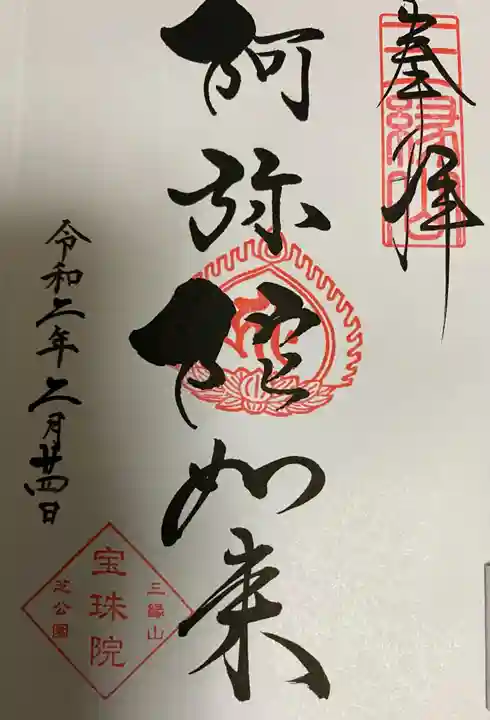 奉拝
三縁山
阿弥陀如来
令和二年二月廿四日
三縁山
宝珠院
芝公園